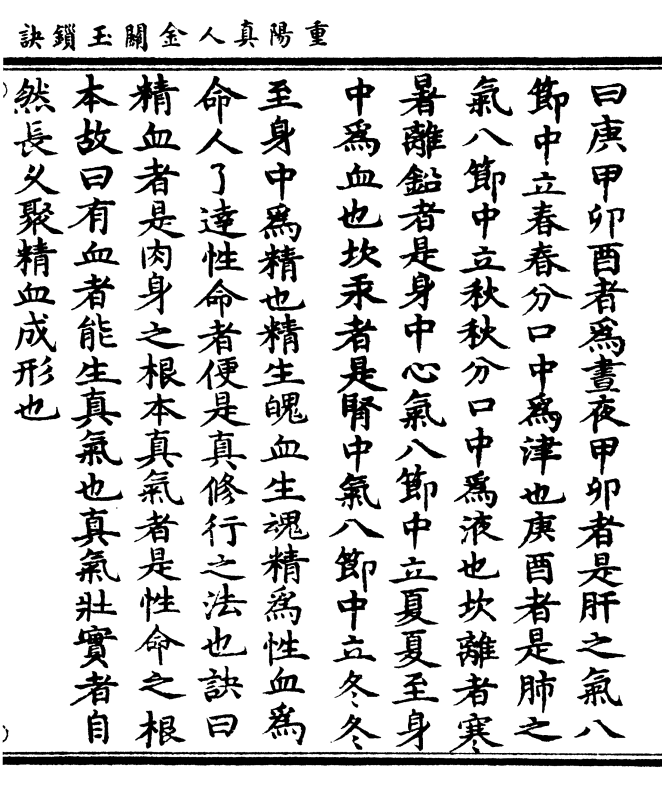 重陽真人金關玉鎖訣
曰庚甲卯酉者為晝夜甲卯者是肝之氣八
節中立春春分口中為津也庚酉者是肺之
氣八節中立秋秋分口中為液也坎離者寒
暑離鉛者是身中心氣八節中立夏夏至身
中為血也坎汞者是腎中氣八節中立冬冬
至身中為精也精生魄血生魂精為性血為
命人了達性命者便是真修行之法也訣曰
精血者是肉身之根本真氣者是性命之根
本故曰有血者能生真氣也真氣壯實者自
然長久聚精血成形也